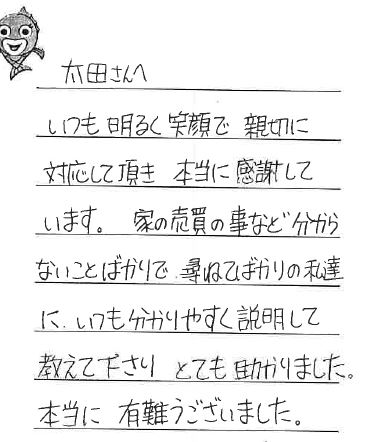 太田さんへ
いつも明るく笑顔で 親切に
対応して頂き 本当に感謝して
います。 家の売買の事など分から
ないことばかりで、尋ねてばかりの私達
に、いつも分かりやすく説明して
教えて下さり とても助かりました。
本当に 有難うございました。